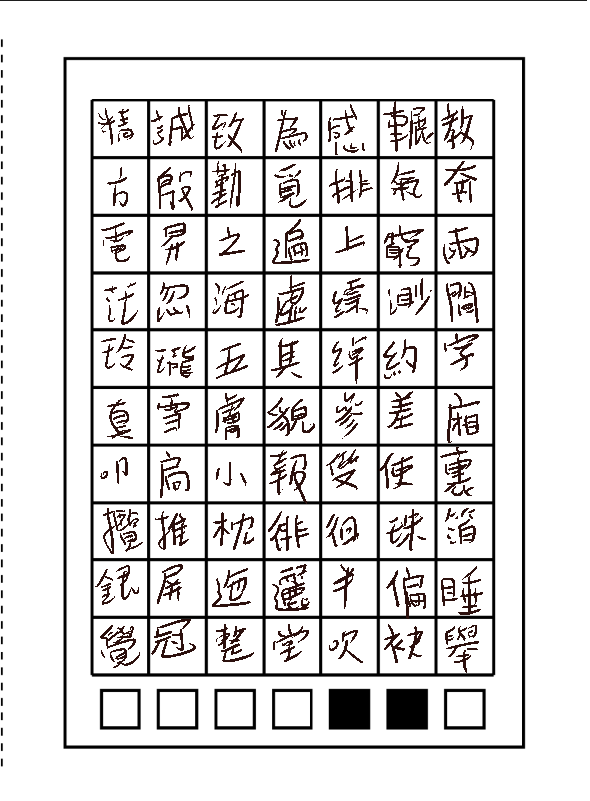 精誠致為感輾教
方殷勤覓排氣奔
電昇之遍上窮兩
茫忽海虛縹渺間
玲瓏五其綽約字
真雪膚貌參差廂
叩扃小報雙使裏
攬推枕徘徊珠箔
銀屏迤邐半偏睡
覺冠整堂吹袂舉